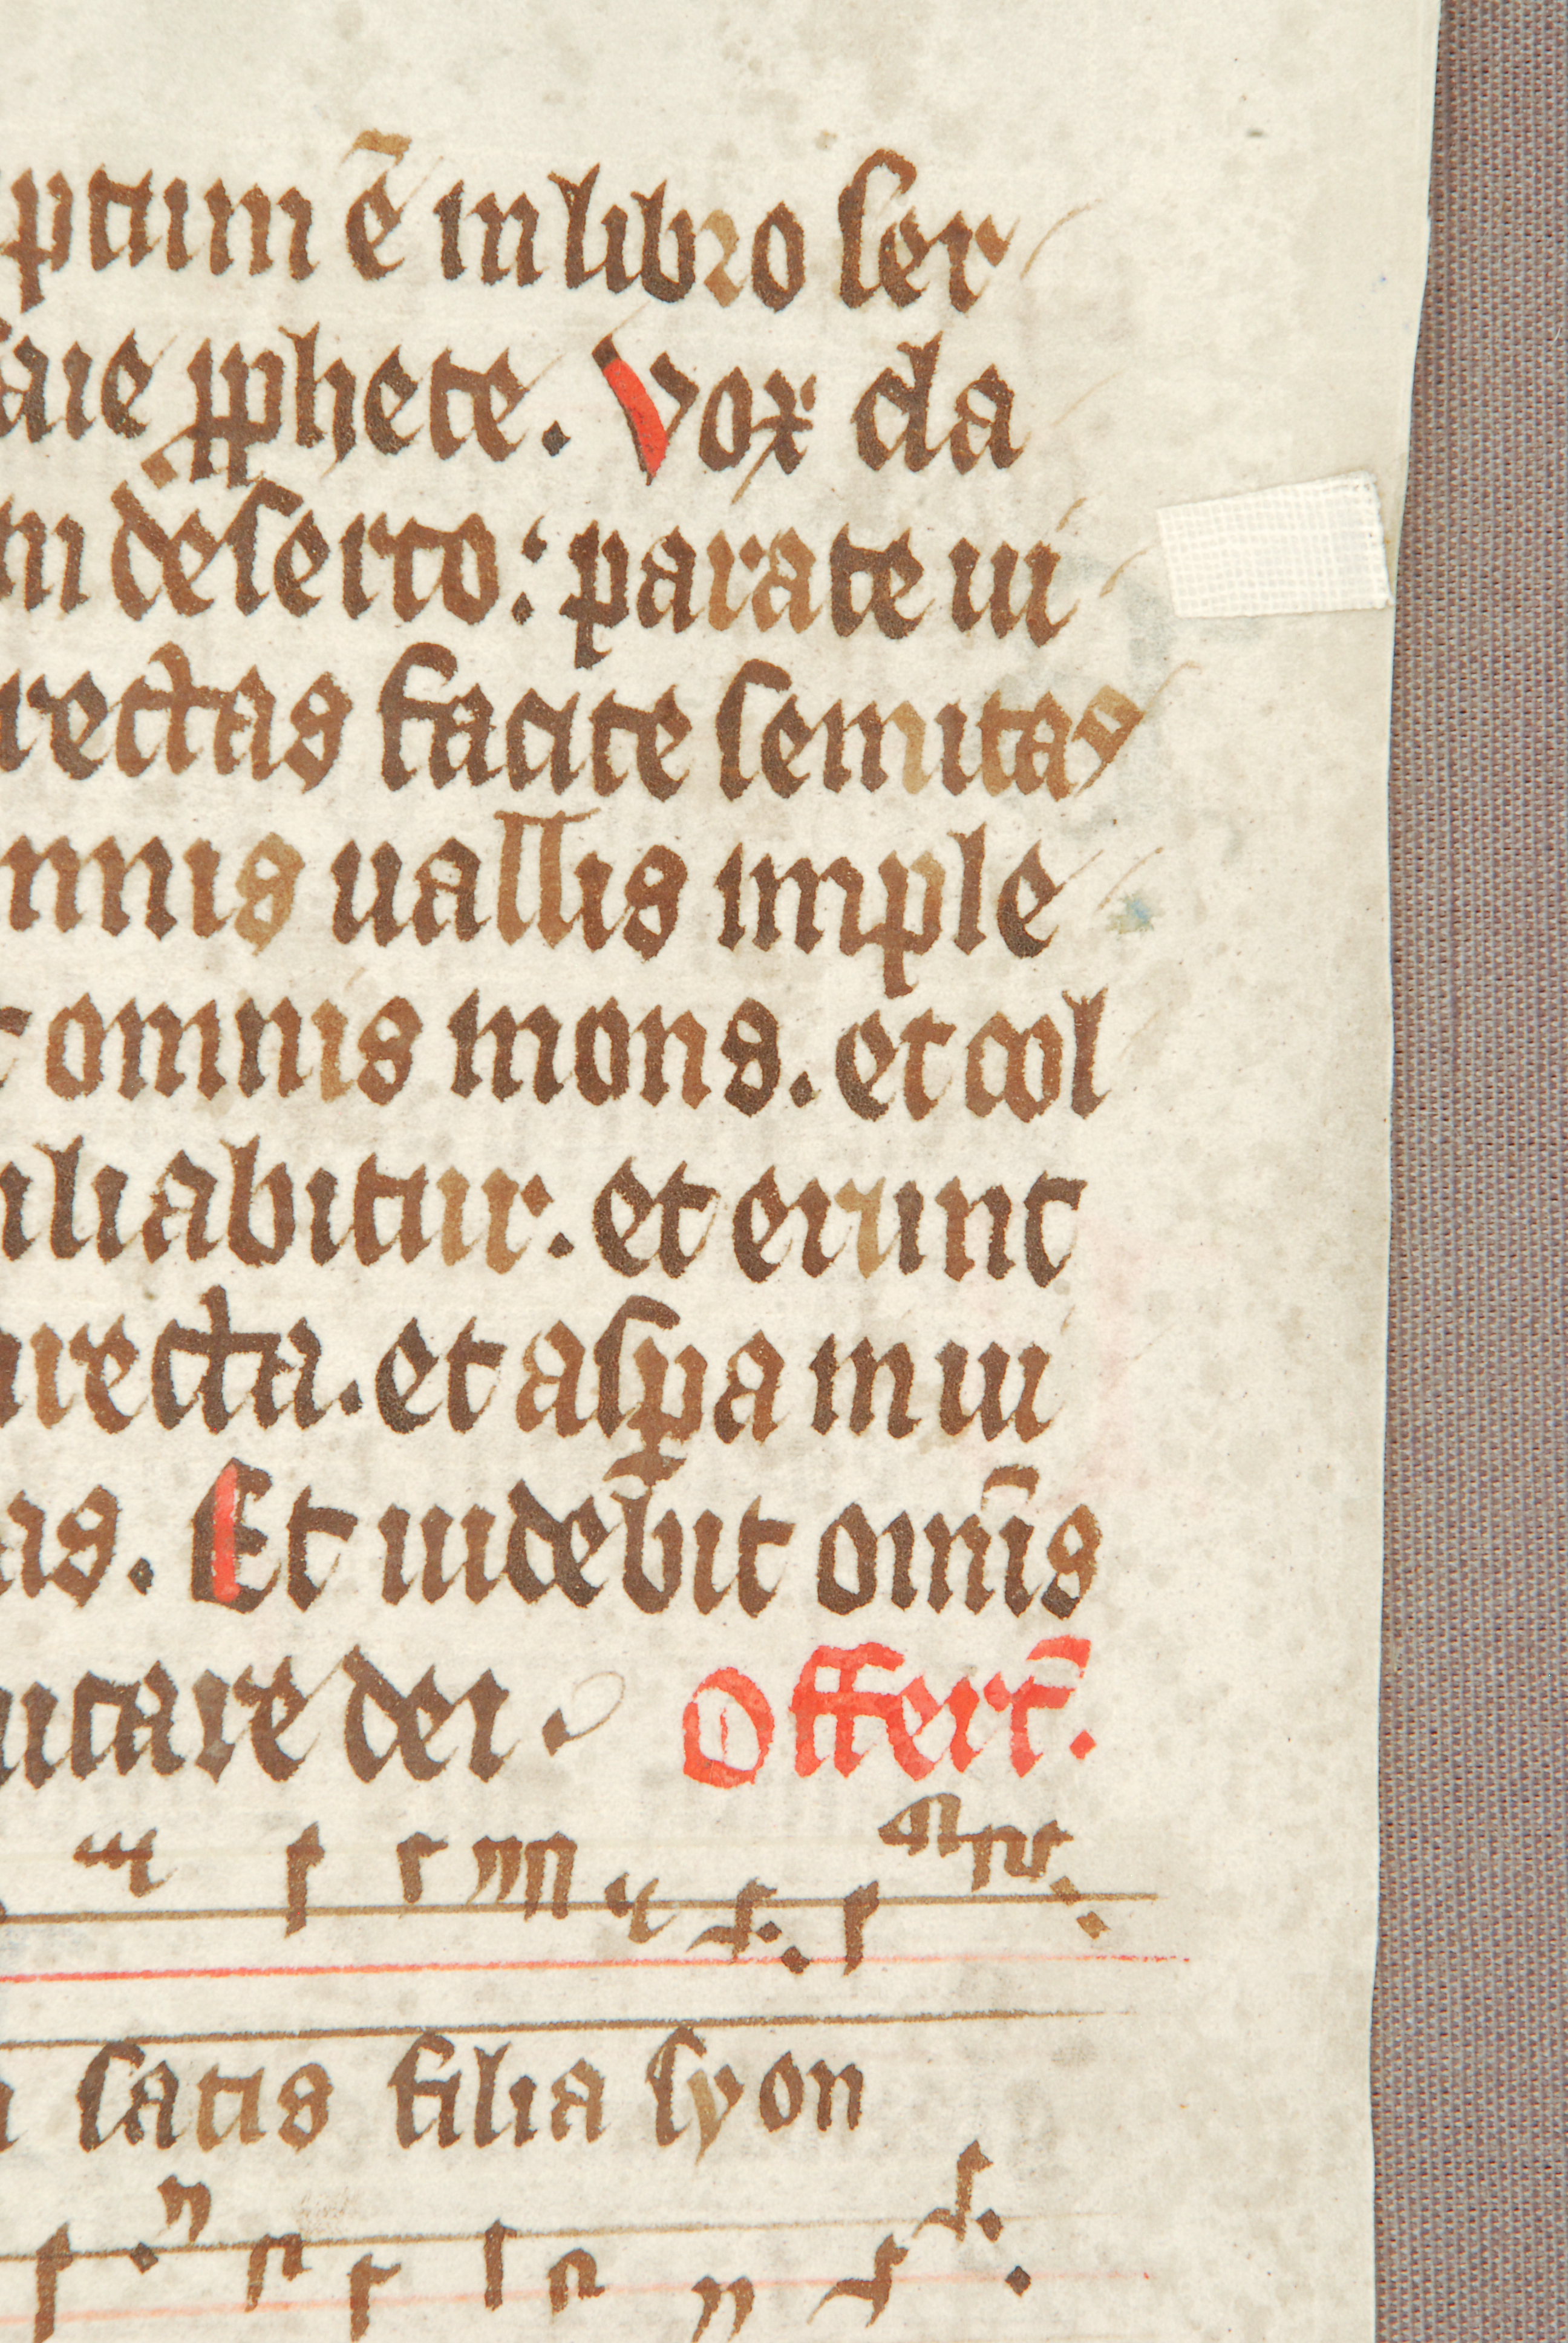 ptum ē in libro ser
saie ꝓphete. Vox cla
in deserto: parate ui
rectas facite semitas
mnis uallis imple
omnis mons. et col
iliabitur. et erunt
irecta. et asꝑa in ui
as. Et uidebit om̄is
utare dei. Offert̄.
satis filia syon